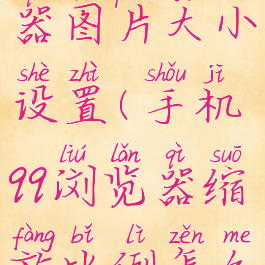 器图片大小
shè zhì shǒu jī
设置(手机
liú lǎn qì suō
99浏览器缩
fàng bǐ lì zěn me
放比例怎么